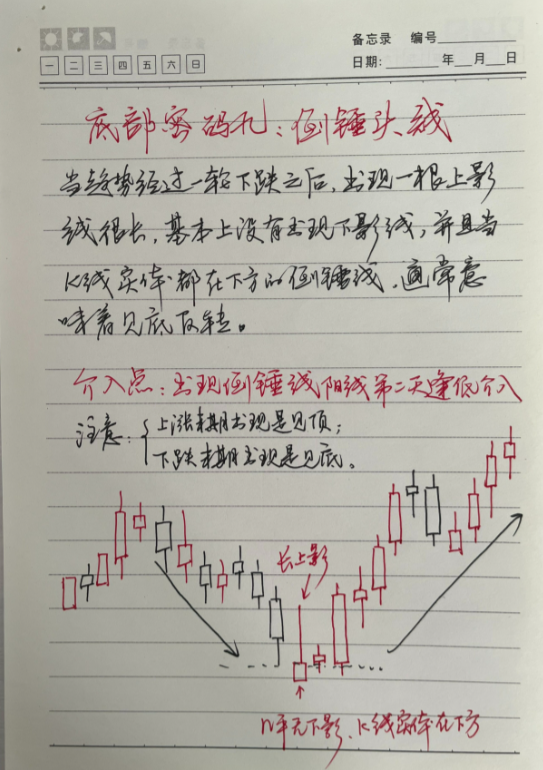 备忘录 编号
一 二 三 四 五 六 日
日期: 年 月 日
底部密码九:倒锤头线
当趋势经过一轮下跌之后,出现一根上影
线很长,基本上没有出现下影线,并且当
K线实体都在下方的倒锤线,通常意
味着见底反转。
介入点:出现倒锤线阳线第二天逢低介入
注意:{上涨末期出现是见顶;
下跌末期出现是见底。
长上影
几乎无下影、K线实体在下方